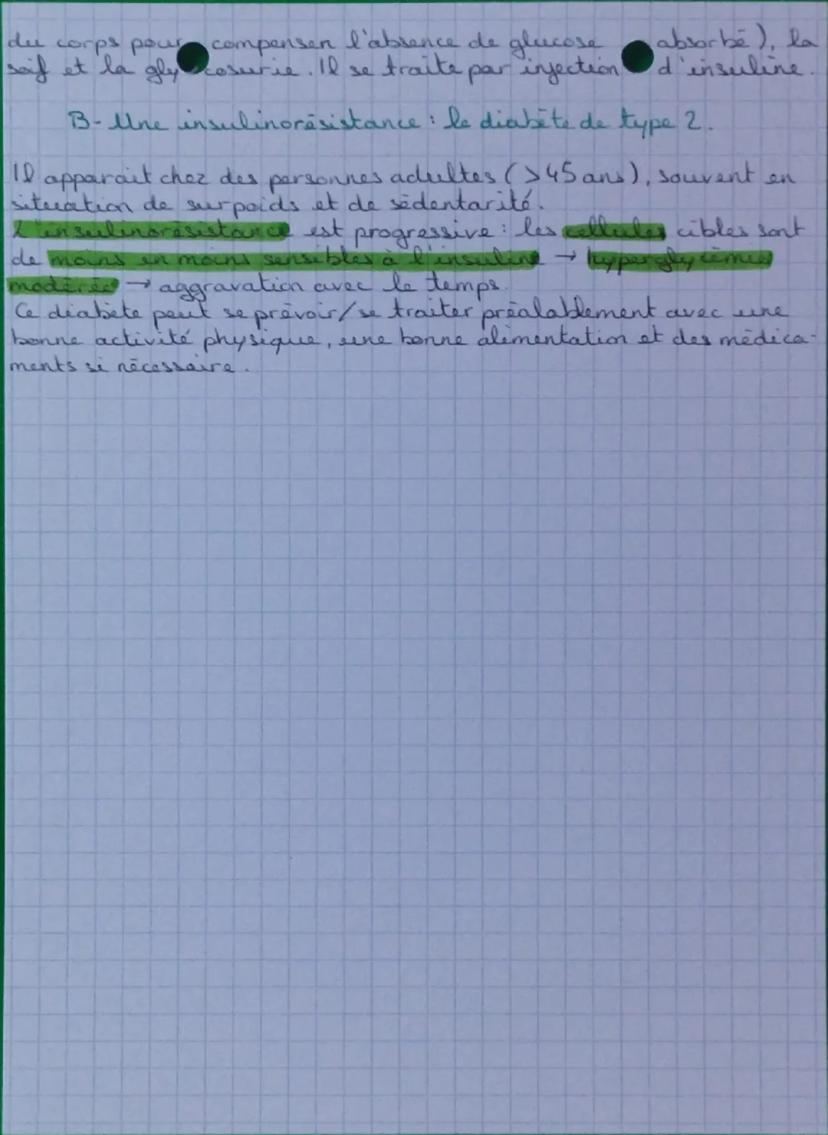 du corps pour compenser l'absence de glucose absorbé), la
soif et la glycosurie. Il se traite par injection d'insuline.
B- Une insulinorésistance : le diabète de type 2.
Il apparait chez des personnes adultes (>45 ans), souvent en
situation de surpoids et de sédentarité.
L'insulinorésistance est progressive : les cellules cibles sont
de moins en moins sensibles à l'insuline → hyperglycémie
modérée → aggravation avec le temps.
Ce diabète peut se prévoir/se traiter préalablement avec une
bonne activité physique, une bonne alimentation et des médica-
ments si nécessaire.